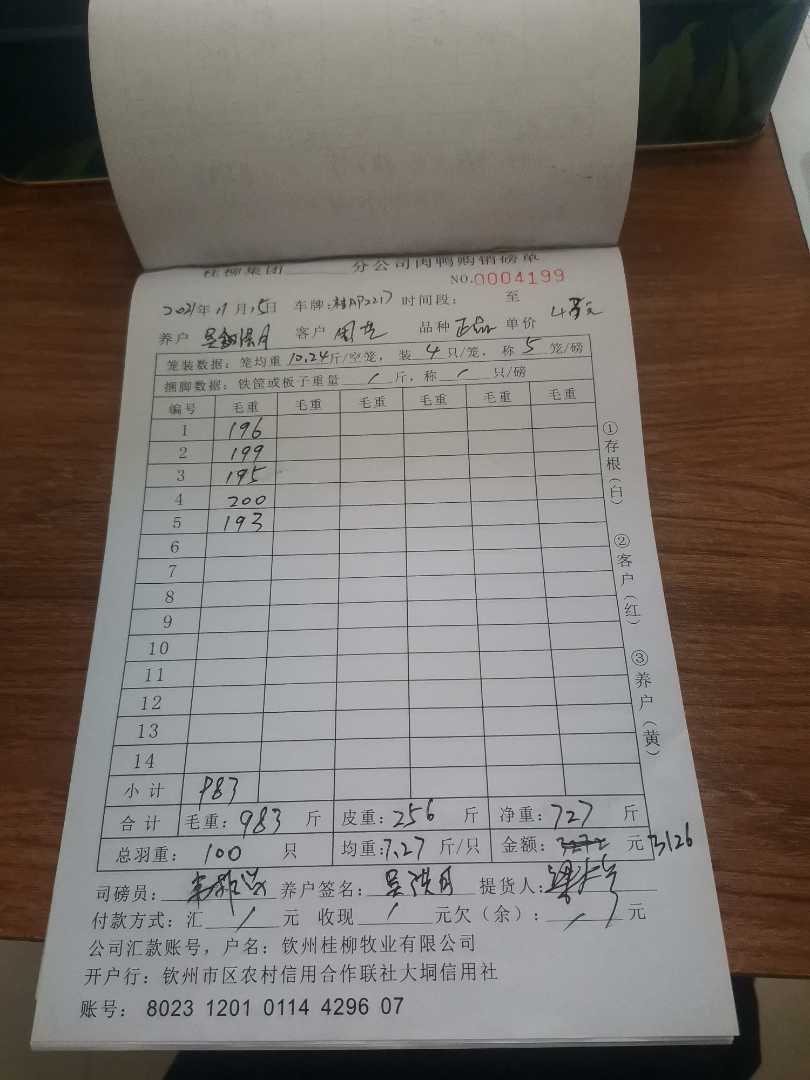 桂柳集团 分公司肉鸭购销磅单
NO.0004199
2021年11月15日 车牌:桂AP2217 时间段: 至
养户 客户 品种 正品 单价
笼装数据: 笼均重 10.24 斤/空笼, 装 4 只/笼, 称 5 笼/磅
捆脚数据: 铁筐或板子重量 / 斤, 称 / 只/磅
编号 毛重 毛重 毛重 毛重 毛重 毛重
1 196
2 199
3 195
4 200
5 193
6
7
8
9
10
11
12
13
14
小计 983
合计 毛重: 983 斤 皮重: 256 斤 净重: 727 斤
总羽重: 100 只 均重: 7.27 斤/只 金额: 元 3126
司磅员: 养户签名: 吴洪月 提货人:
付款方式: 汇 / 元 收现 / 元欠(余): / 元
公司汇款账号, 户名: 钦州桂柳牧业有限公司
开户行: 钦州市区农村信用合作联社大垌信用社
账号: 8023 1201 0114 4296 07
①存根(白)
②客户(红)
③养户(黄)